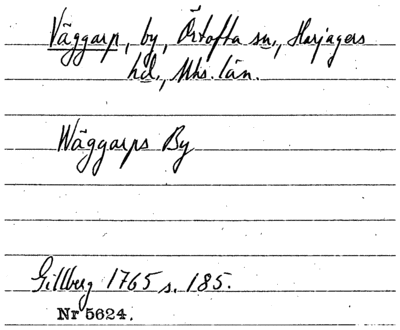 Väggarp, by, Örtofta sn., Harjagers
hd., Mhs. län.
Wäggarps By
Gillberg 1765 s. 185.
Nr 5624.